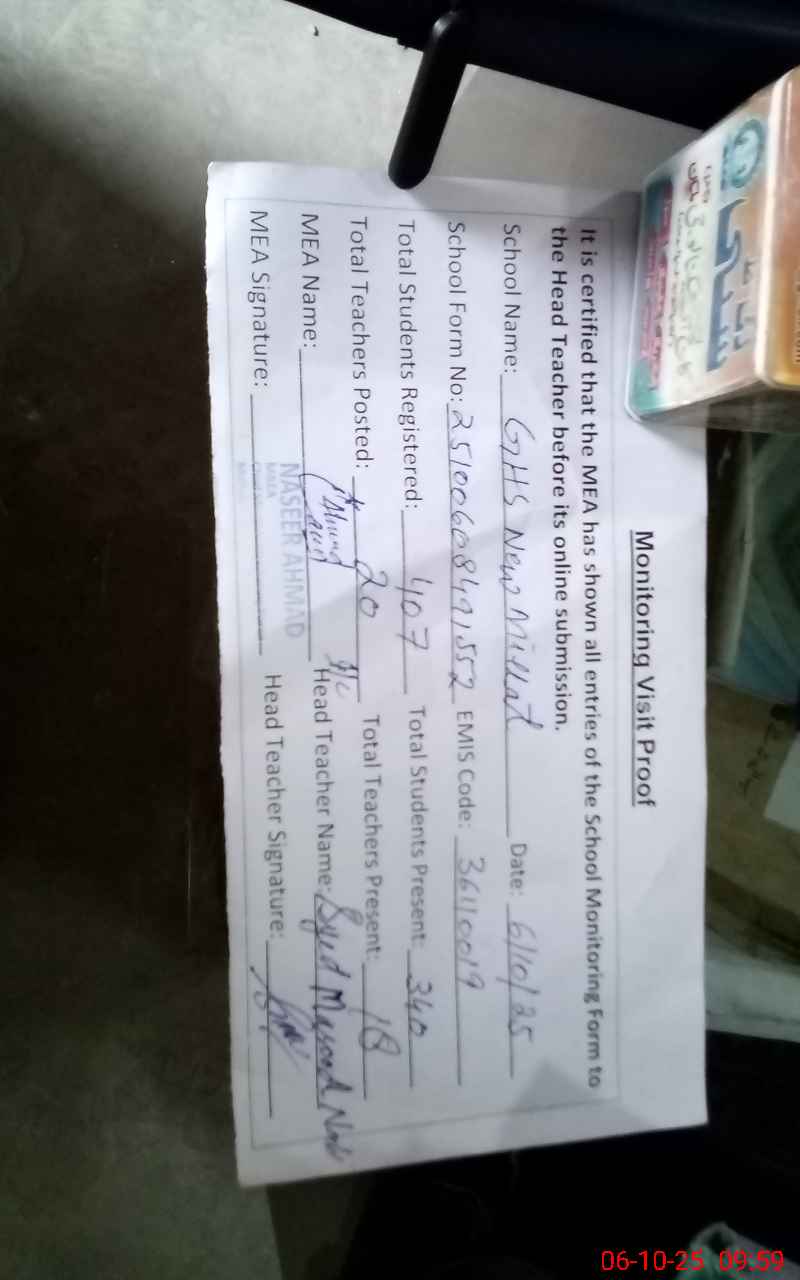 Monitoring Visit Proof
It is certified that the MEA has shown all entries of the School Monitoring Form to
the Head Teacher before its online submission.
School Name: GHS New Millat Date: 6/10/25
School Form No: 25100608491552 EMIS Code: 36110019
Total Students Registered: 407 Total Students Present: 340
Total Teachers Posted: 20 Total Teachers Present: 18
MEA Name: I/C Head Teacher Name: Syed Masood
NASEER AHMAD
MEA Signature: Head Teacher Signature:
06-10-25 09:59